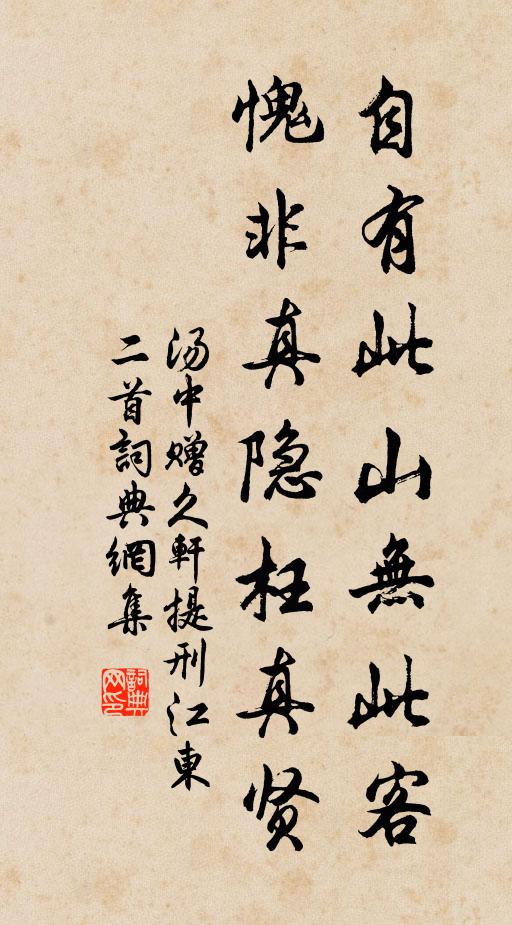 自有此山無此客
愧非真隐枉真贤
汤中赠久軒提刑江東
二首詞典網集
詞典網印